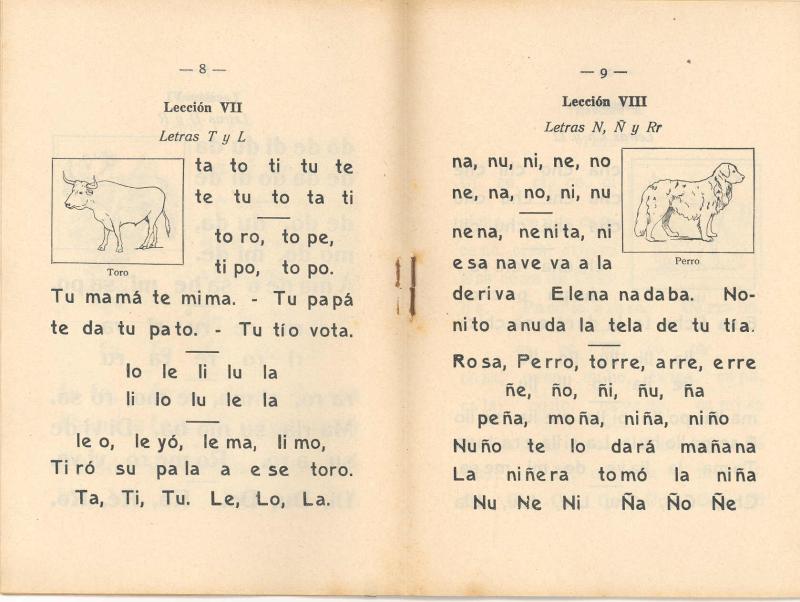 — 8 —
Lección VII
Letras T y L
ta to ti tu te
te tu to ta ti
to ro, to pe,
ti po, to po.
Toro
Tu mamá te mima. - Tu papá
te da tu pato. - Tu tío vota.
lo le li lu la
li lo lu le la
le o, le yó, le ma, li mo,
Ti ró su pa la a e se toro.
Ta, Ti, Tu. Le, Lo, La.
— 9 —
Lección VIII
Letras N, Ñ y Rr
na, nu, ni, ne, no
ne, na, no, ni, nu
nena, nenita, ni
esa nave va a la
Perro
deriva Elena nadaba. No-
nito anuda la tela de tu tía.
Rosa, Perro, torre, arre, erre
ñe, ño, ñi, ñu, ña
peña, moña, niña, niño
Nuño te lo dará mañana
La niñera tomó la niña
Nu Ne Ni Ña Ño Ñe